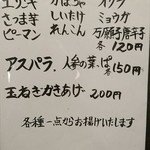 エリンギ かぼちゃ オクラ
さつま芋 しいたけ ミョウガ
ピーマン れんこん 万願寺唐辛子
各120円
アスパラ、人参の葉、ぱ
各150円
玉ねぎかきあげ 200円
各種一点からお揚げいたします